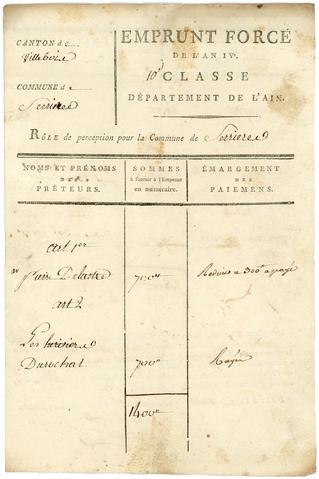 CANTON de
Villebois
COMMUNE de
Serrieres
EMPRUNT FORCÉ
DE L'AN IVe.
10e CLASSE
DÉPARTEMENT DE L'AIN.
RÔLE de perception pour la Commune de Serrieres
NOMS ET PRÉNOMS
DES
PRÊTEURS.
SOMMES
à fournir à l'Emprunt
en numéraire.
ÉMARGEMENT
DES
PAIEMENS.
art 1er
700
Réduit a 300 a payé
art 2
Les heritiers
Durochat
700
Rayé
1400